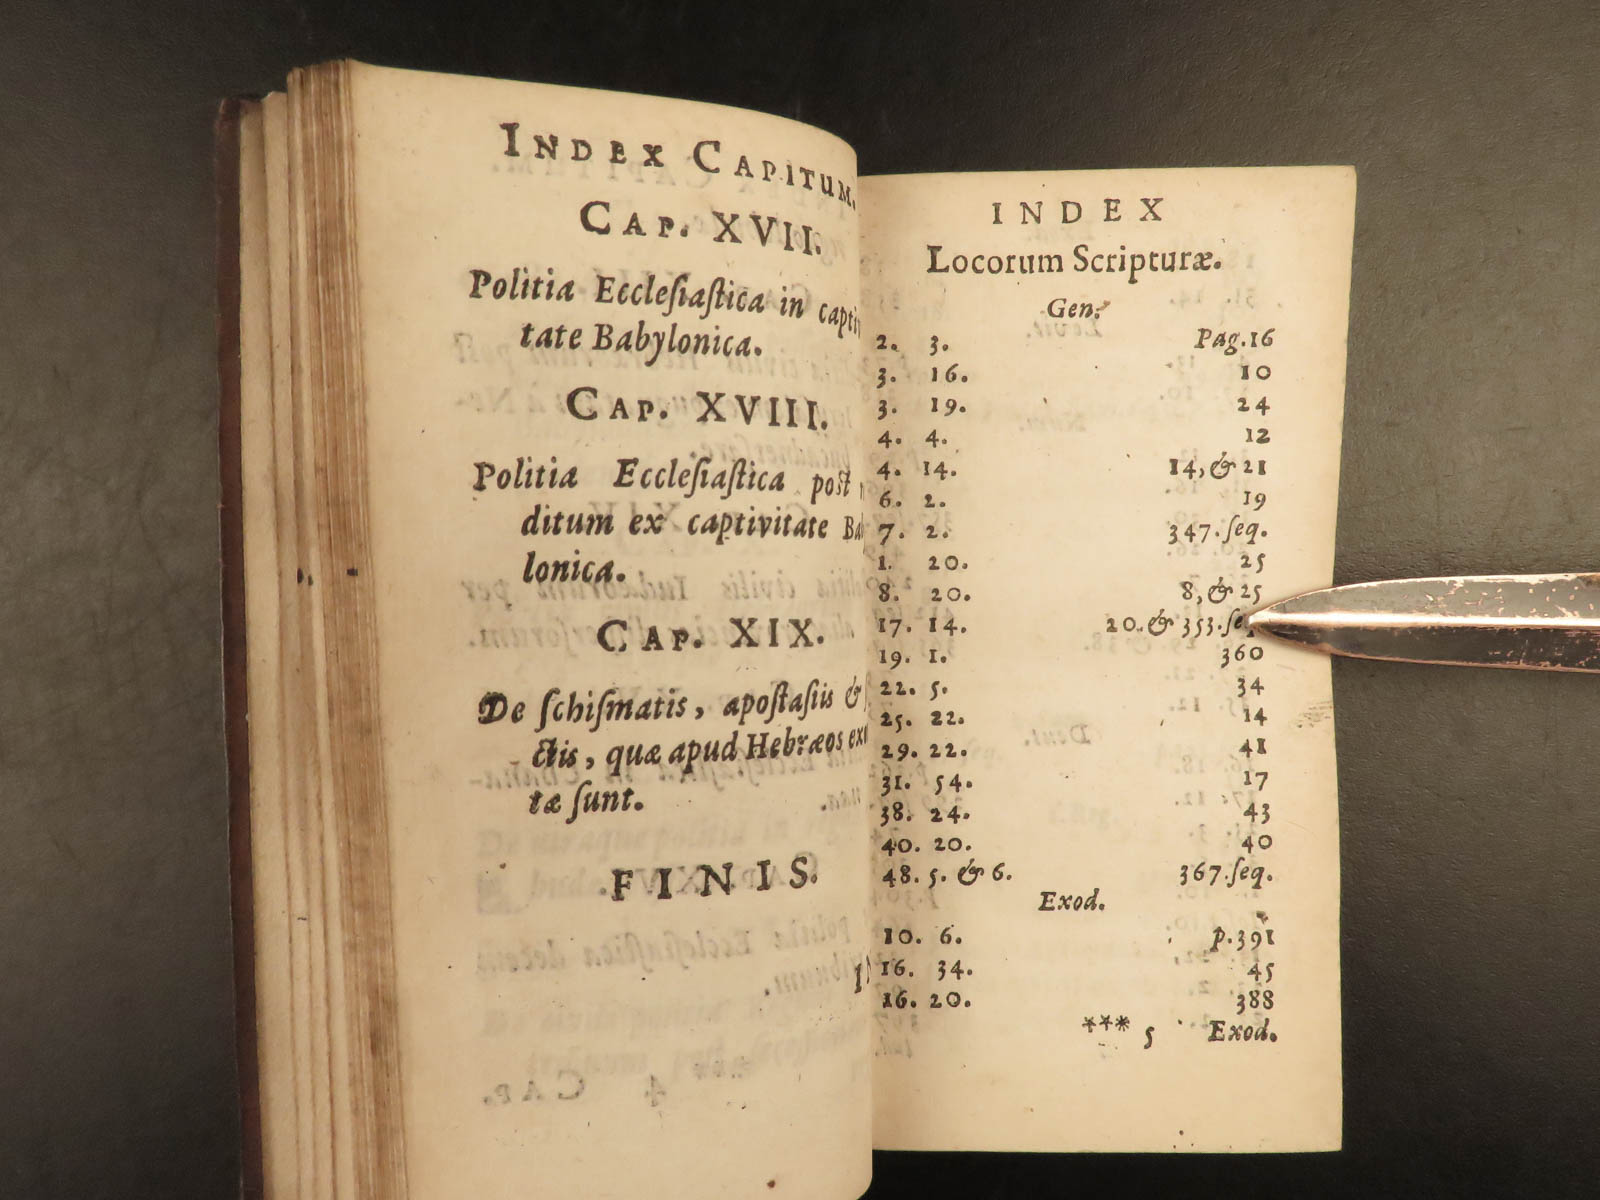 INDEX CAPITUM.
CAP. XVII.
Politia Eccleſiaſtica in capti
tate Babylonica.
CAP. XVIII.
Politia Eccleſiaſtica post
ditum ex captivitate Ba
lonica.
CAP. XIX.
De ſchiſmatis, apoſtaſiis &
ctis, quæ apud Hebræos ex
tæ ſunt.
FINIS.
INDEX
Locorum Scripturæ.
Gen.
2. 3. Pag.16
3. 16. 10
3. 19. 24
4. 4. 12
4. 14. 14, & 21
6. 2. 19
7. 2. 347.ſeq.
1. 20. 25
8. 20. 8, & 25
17. 14. 20. & 353.ſe
19. 1. 360
22. 5. 34
25. 22. 14
29. 22. 41
31. 54. 17
38. 24. 43
40. 20. 40
48. 5. & 6. 367.ſeq.
Exod.
10. 6. p.391
16. 34. 45
16. 20. 388
*** 5 Exod.